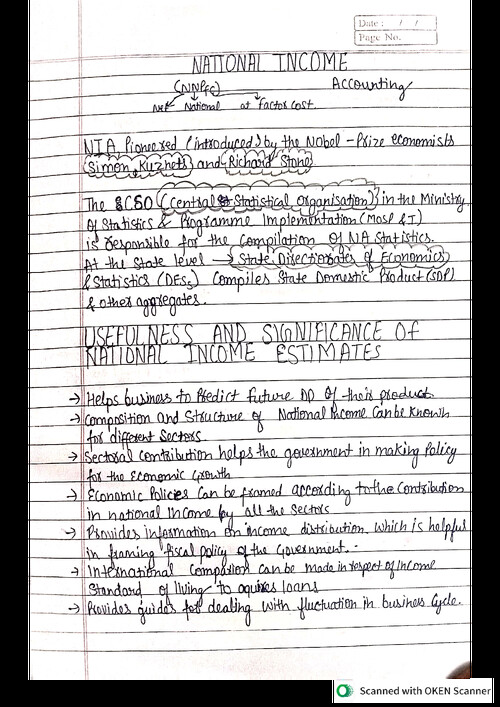 Date : / /
Page No.
NATIONAL INCOME
(NNPFC) Accounting
Net National at Factor Cost.
NIA Pioneered (introduced) by the Nobel - Prize economists
Simon Kuznets and Richard Stone
The CSO (Central Statistical Organisation) in the Ministry
Of Statistics & Programme Implementation (MoSP & I)
is responsible for the Compilation Of NA Statistics.
At the State level → State Directorates of Economics
& Statistics (DESs) Compiles State Domestic Product (SDP)
& other aggregates.
USEFULNESS AND SIGNIFICANCE Of
NATIONAL INCOME ESTIMATES
→ Helps business to Predict future DD Of their product.
→ Composition and Structure of National Income Can be Known
for different Sectors
→ Sectoral Contribution helps the government in making Policy
for the Economic Growth
→ Economic Policies Can be framed according to the Contribution
in national income by all the Sectors
→ Provides information on income distribution which is helpful
in framing fiscal policy of the Government.
→ International Comparison can be made in respect of Income
Standard of living to aquires loans
→ Provides guides for dealing with fluctuation in business Cycle.
Scanned with OKEN Scanner